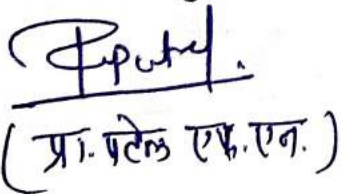 (प्रा. पटेल एफ. एन.)